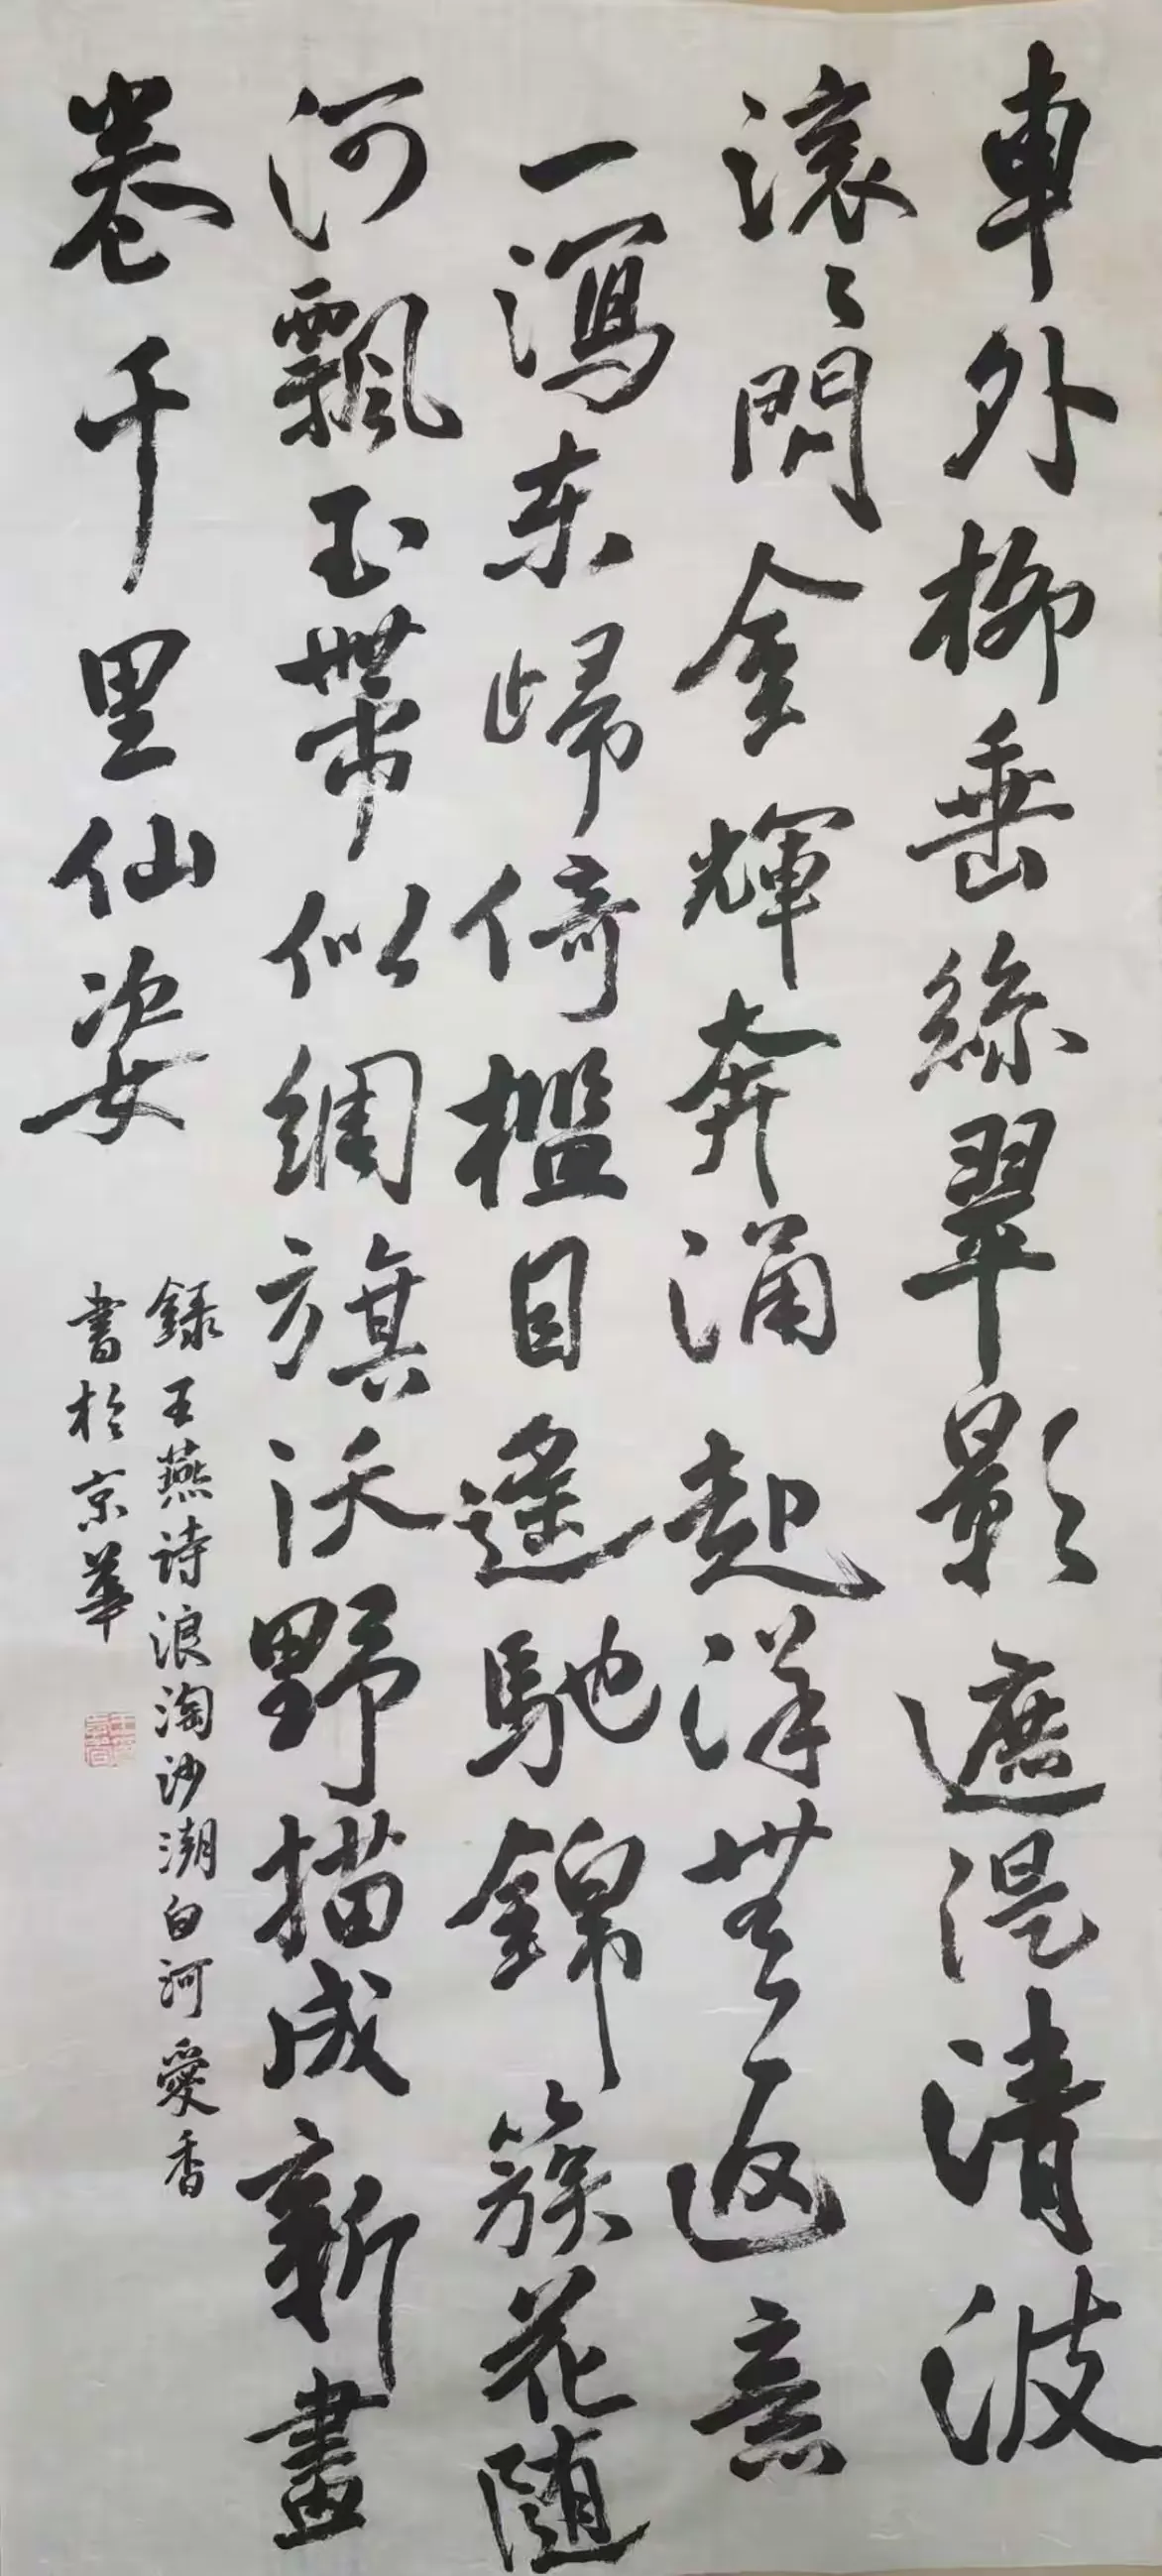 車外柳垂絲翠影遮湜清波
滾〻閃金輝奔涌起洋無返意
一瀉东歸倚檻目遥馳錦簇花随
河飄玉帶似綢旗沃野描成新畫
卷千里仙姿
録王燕诗浪淘沙潮白河愛香
書於京華